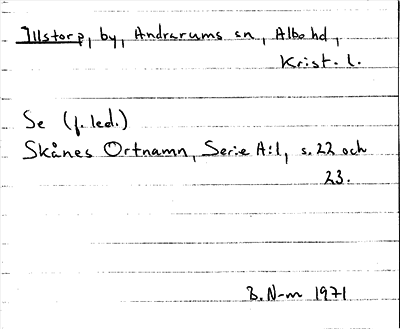 Illstorp, by, Andrarums sn, Albo hd,
Krist. l.
Se (f. led.)
Skånes Ortnamn, Serie A:1, s. 22 och
23.
B. N-m 1971